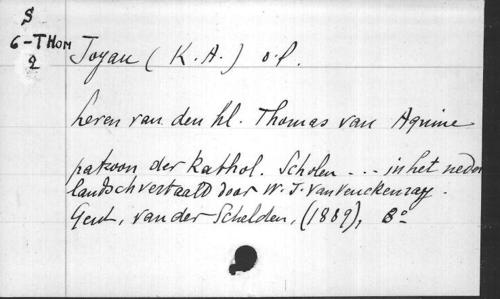 S
6-THOM
2
Joyau (K. A.) o.p.
Leven van den hl. Thomas van Aquine
patroon der Kathol. Scholen --- in het neder
landsch vertaald door W. J. Van Venckenray.
Gent, van der Schelden, (1889), 8º